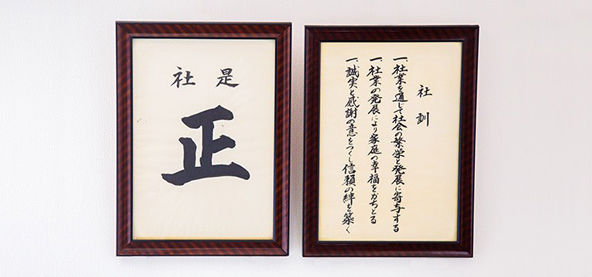 社是
正
社訓
一、社業を通じて社会の繁栄と発展に寄与する
一、社業の発展により家庭の幸福をかちとる
一、誠実と感謝の意をつくし信頼の絆を築く